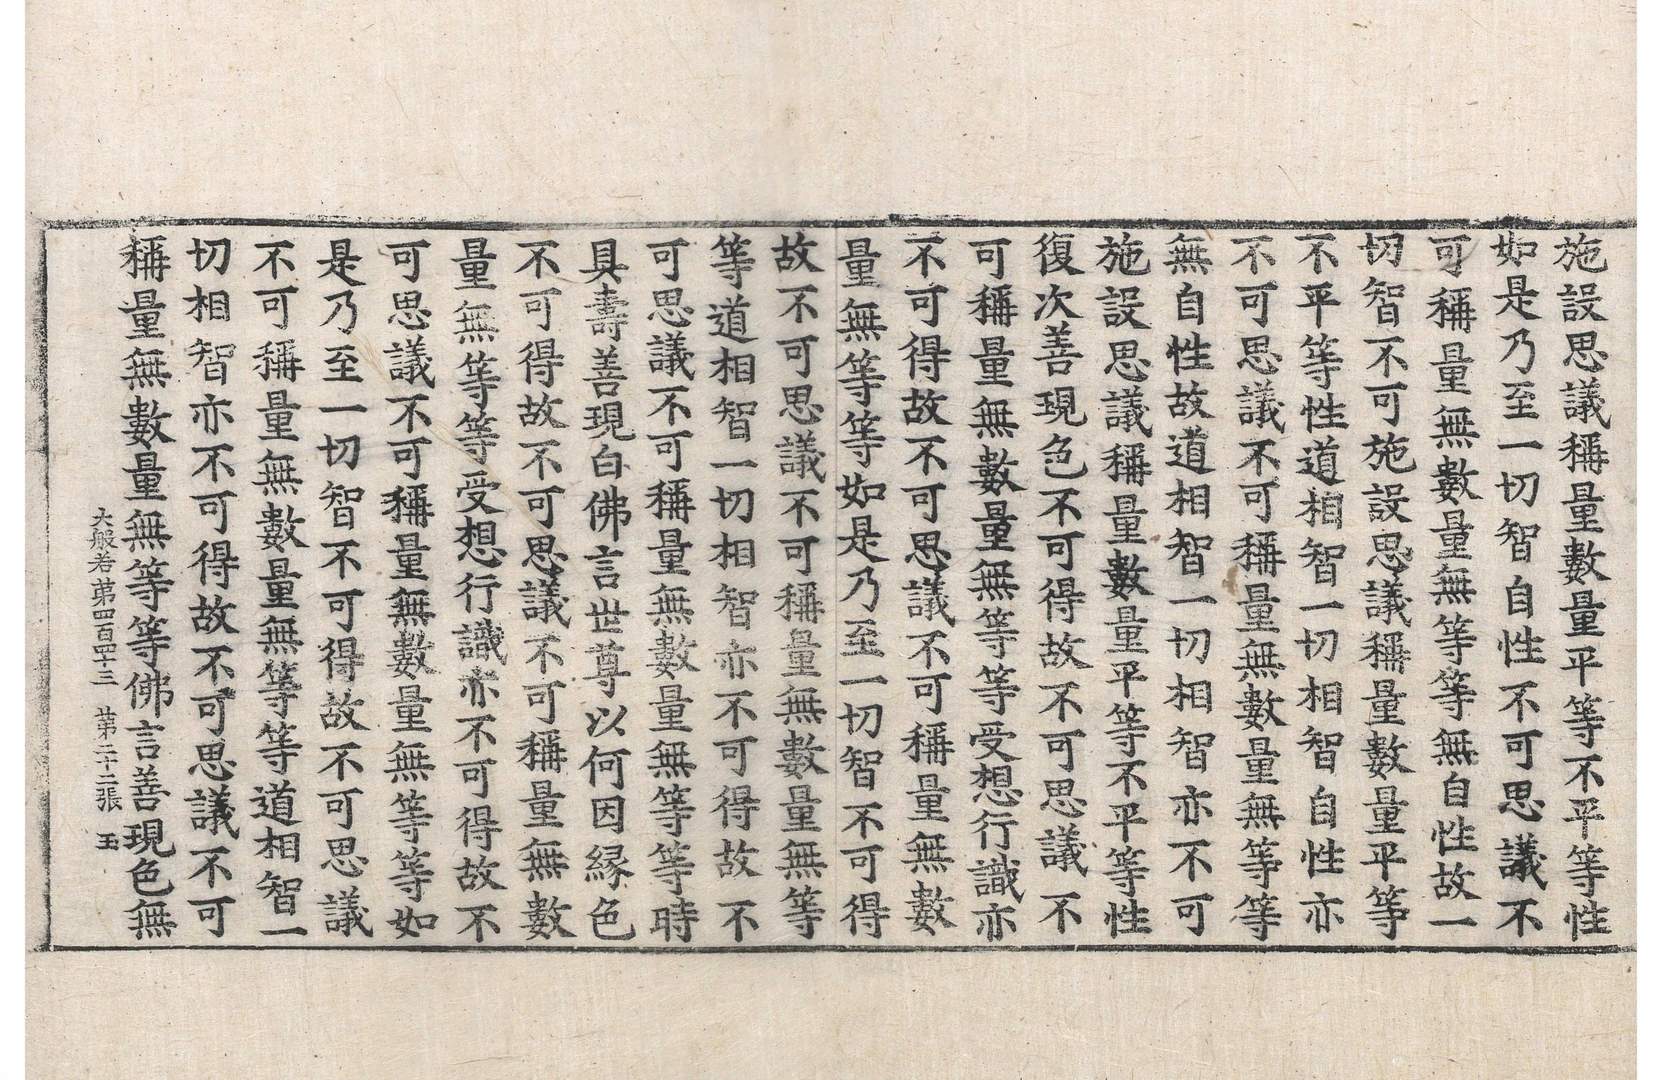 施設思議稱量數量平等不平等性
如是乃至一切智自性不可思議不
可稱量無數量無等等無自性故一
切智不可施設思議稱量數量平等
不平等性道相智一切相智自性亦
不可思議不可稱量無數量無等等
無自性故道相智一切相智亦不可
施設思議稱量數量平等不平等性
復次善現色不可得故不可思議不
可稱量無數量無等等受想行識亦
不可得故不可思議不可稱量無數
量無等等如是乃至一切智不可得
故不可思議不可稱量無數量無等
等道相智一切相智亦不可得故不
可思議不可稱量無數量無等等時
具壽善現白佛言世尊以何因緣色
不可得故不可思議不可稱量無數
量無等等受想行識亦不可得故不
可思議不可稱量無數量無等等如
是乃至一切智不可得故不可思議
不可稱量無數量無等等道相智一
切相智亦不可得故不可思議不可
稱量無數量無等等佛言善現色無
大般若第四百四十三 第二十二張 玉